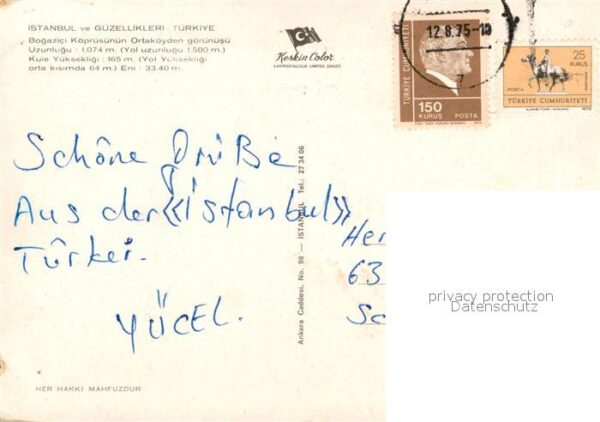 İSTANBUL ve GÜZELLİKLERİ - TÜRKİYE
Boğaziçi Köprüsünün Ortaköyden görünüşü
Uzunluğu : 1.074 m. (Yol uzunluğu 1.500 m.)
Kule Yüksekliği : 165 m. (Yol Yüksekliği
orta kısımda 64 m.) Eni : 33.40 m.
Keskin Color
KARTPOSTALCILIK LIMITED ŞİRKETİ
12.8.75-1
TÜRKİYE CUMHURİYETİ
150
KURUŞ POSTA
25
KURUŞ
POSTA
TÜRKİYE CUMHURİYETİ
Schöne Grüße
Aus der «İstanbul»
Türkei.
YÜCEL.
Ankara Caddesi, No. 98 — İSTANBUL Tel.: 27 34 06
Her
63
Sc
privacy protection
Datenschutz
HER HAKKI MAHFUZDUR